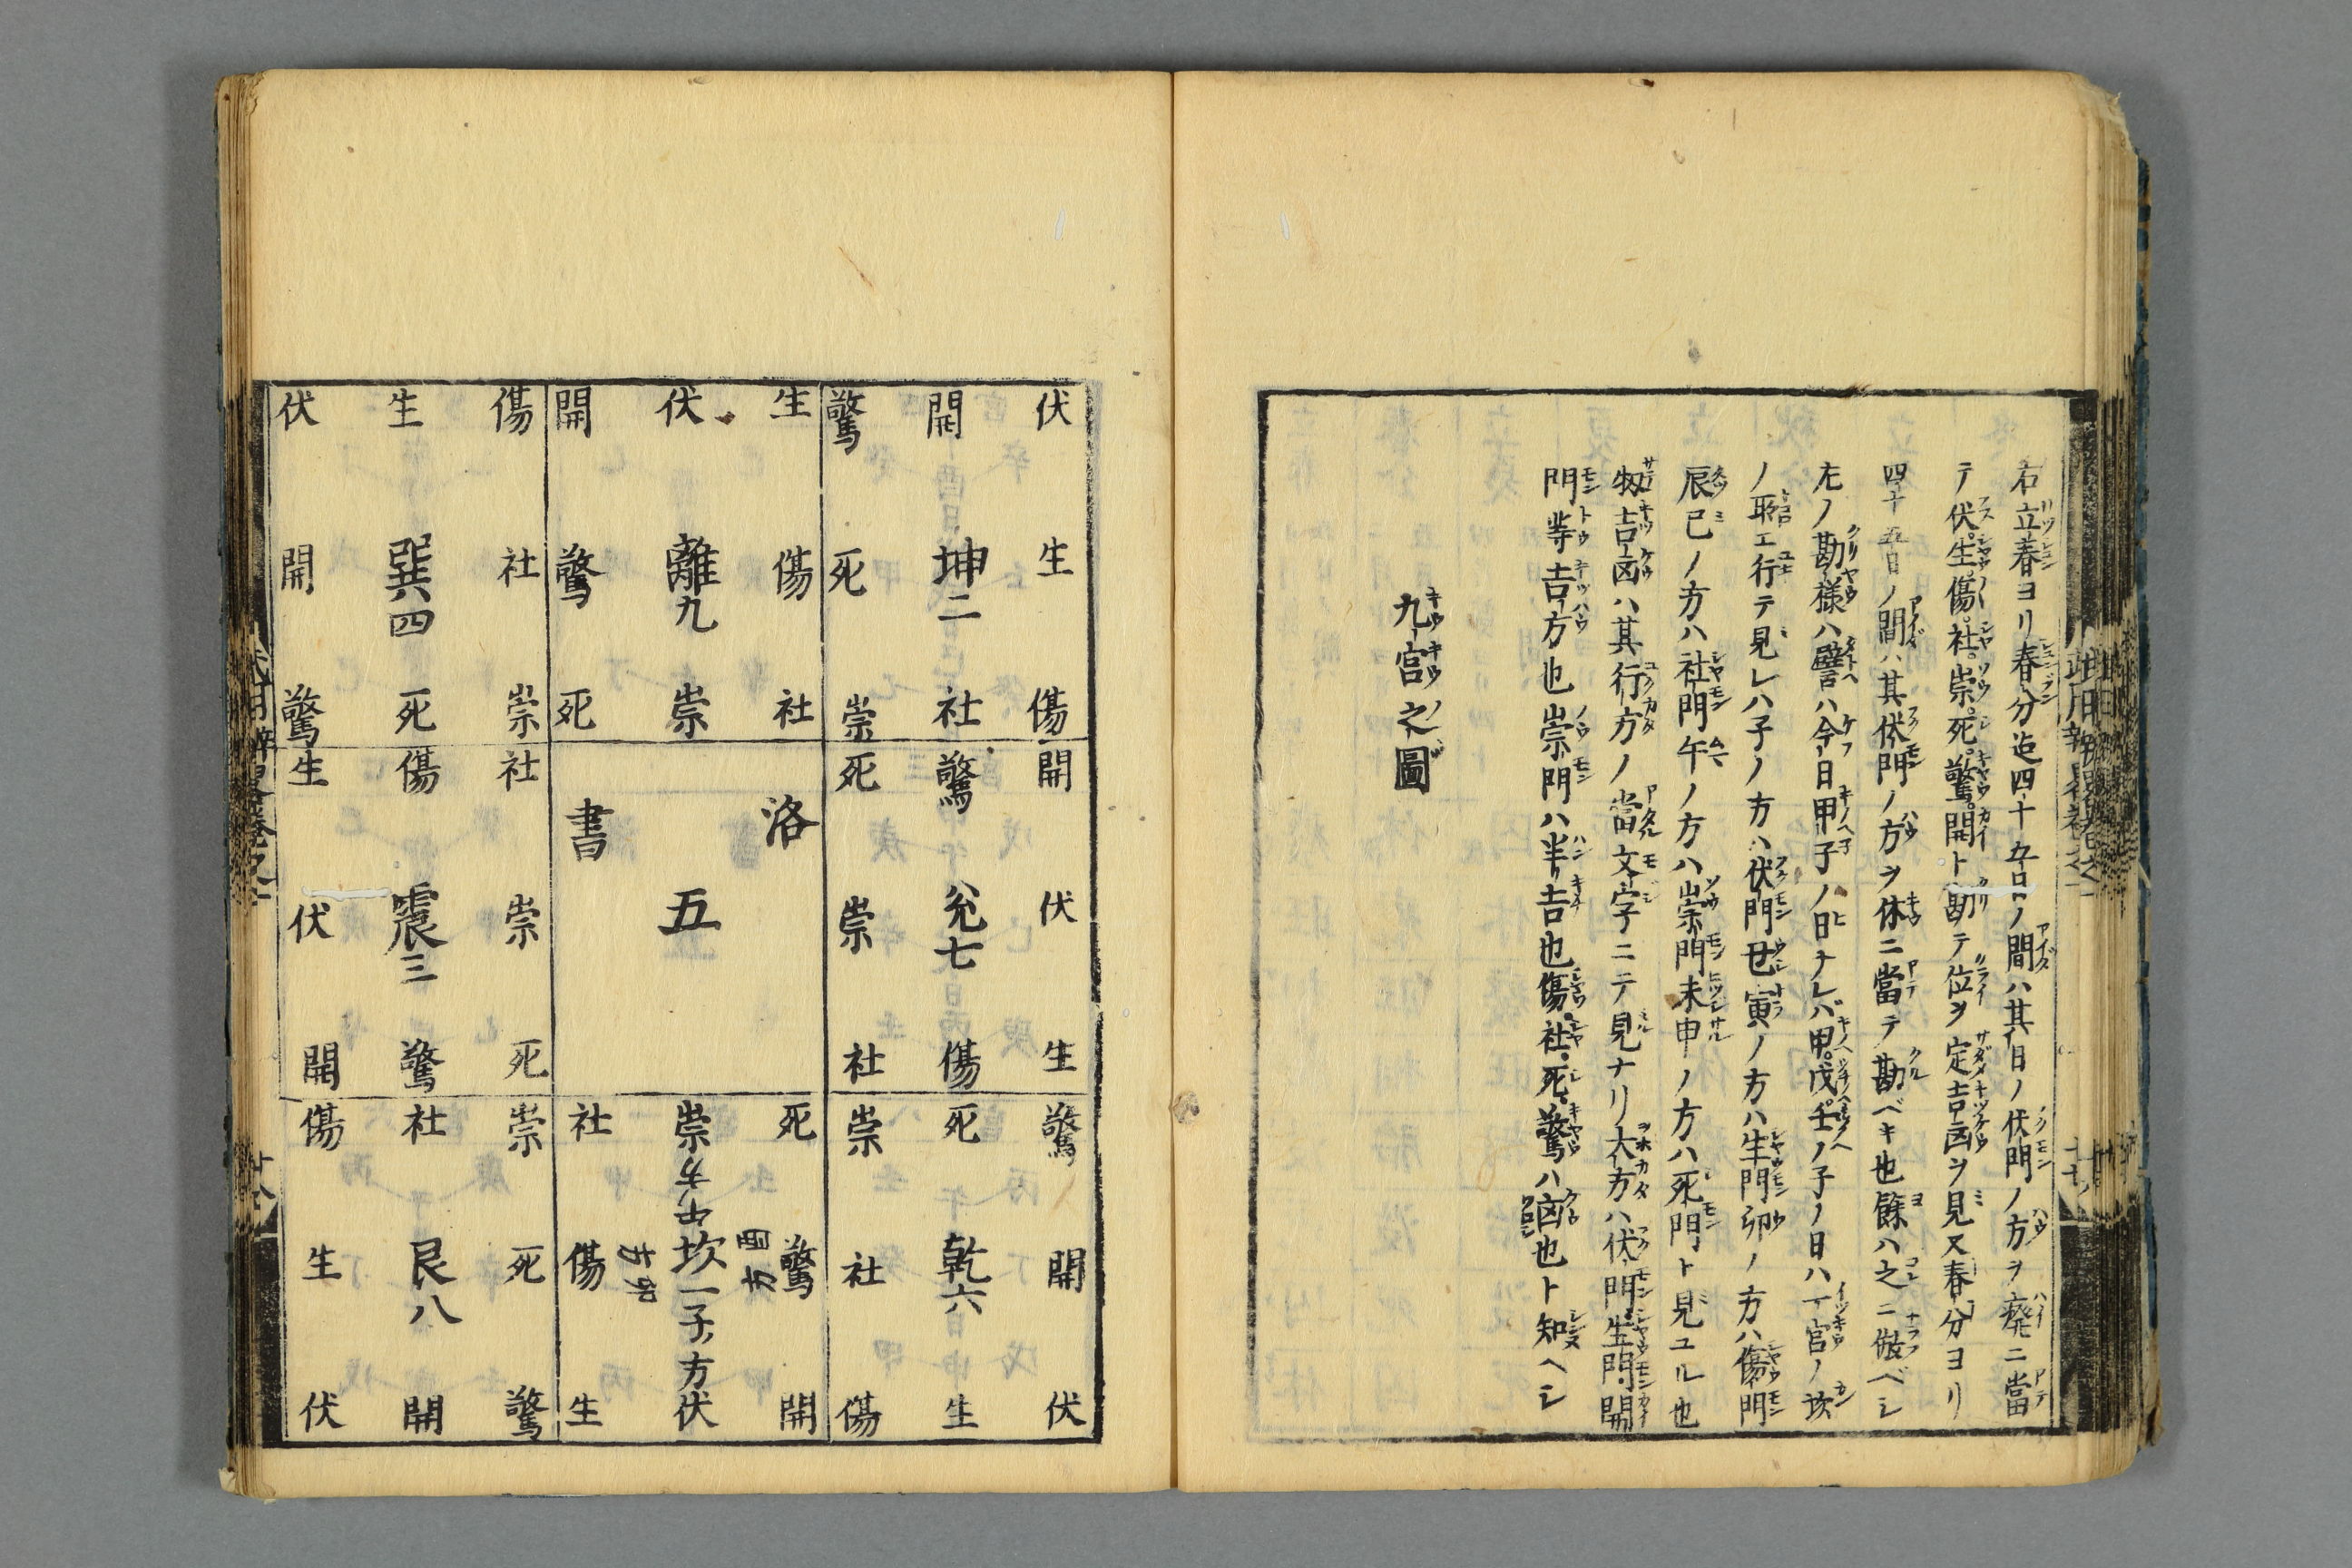 右立春ヨリ春分迄四十五日ノ間ハ其日ノ伏門ノ方ヲ癈ニ當
テ伏生傷社崇死驚開ト勘テ位ヲ定吉凶ヲ見又春分ヨリ
四十五日ノ間ハ其伏門ノ方ヲ休ニ當テ勘ベキ也餘ハ之ニ倣ベシ
左ノ勘様ハ譬ハ今日甲子ノ日ナレバ甲戊壬ノ子ノ日ハ一宮ノ坎
ノ取エ行テ見レハ子ノ方ハ伏門丑寅ノ方ハ生門卯ノ方ハ傷門
辰巳ノ方ハ社門午ノ方ハ崇門未申ノ方ハ死門ト見ユル也
扨吉凶ハ其行方ノ當文字ニテ見ナリ大方ハ伏門生門開
門等吉方也崇門ハ半吉也傷社死驚ハ凶也ト知ヘシ
九宮之圖
伏 生 傷
開 坤二 社
驚 死 崇
生 傷 社
伏 離九 崇
開 驚 死
傷 社 崇
生 巽四 死
伏 開 驚
開 伏 生
驚 兊七 傷
死 崇 社
洛
五
書
社 崇 死
傷 震三 驚
生 伏 開
驚 開 伏
死 乾六 生
崇 社 傷
死 驚 開
崇 坎一子ノ方伏
社 傷 生
崇 死 驚
社 艮八 開
傷 生 伏